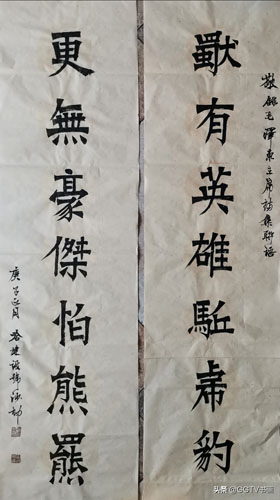 敬錄毛澤東主席詩集聯語
獨有英雄駈虎豹
更無豪傑怕熊羆
庚子正月
头条 @GGTV书画